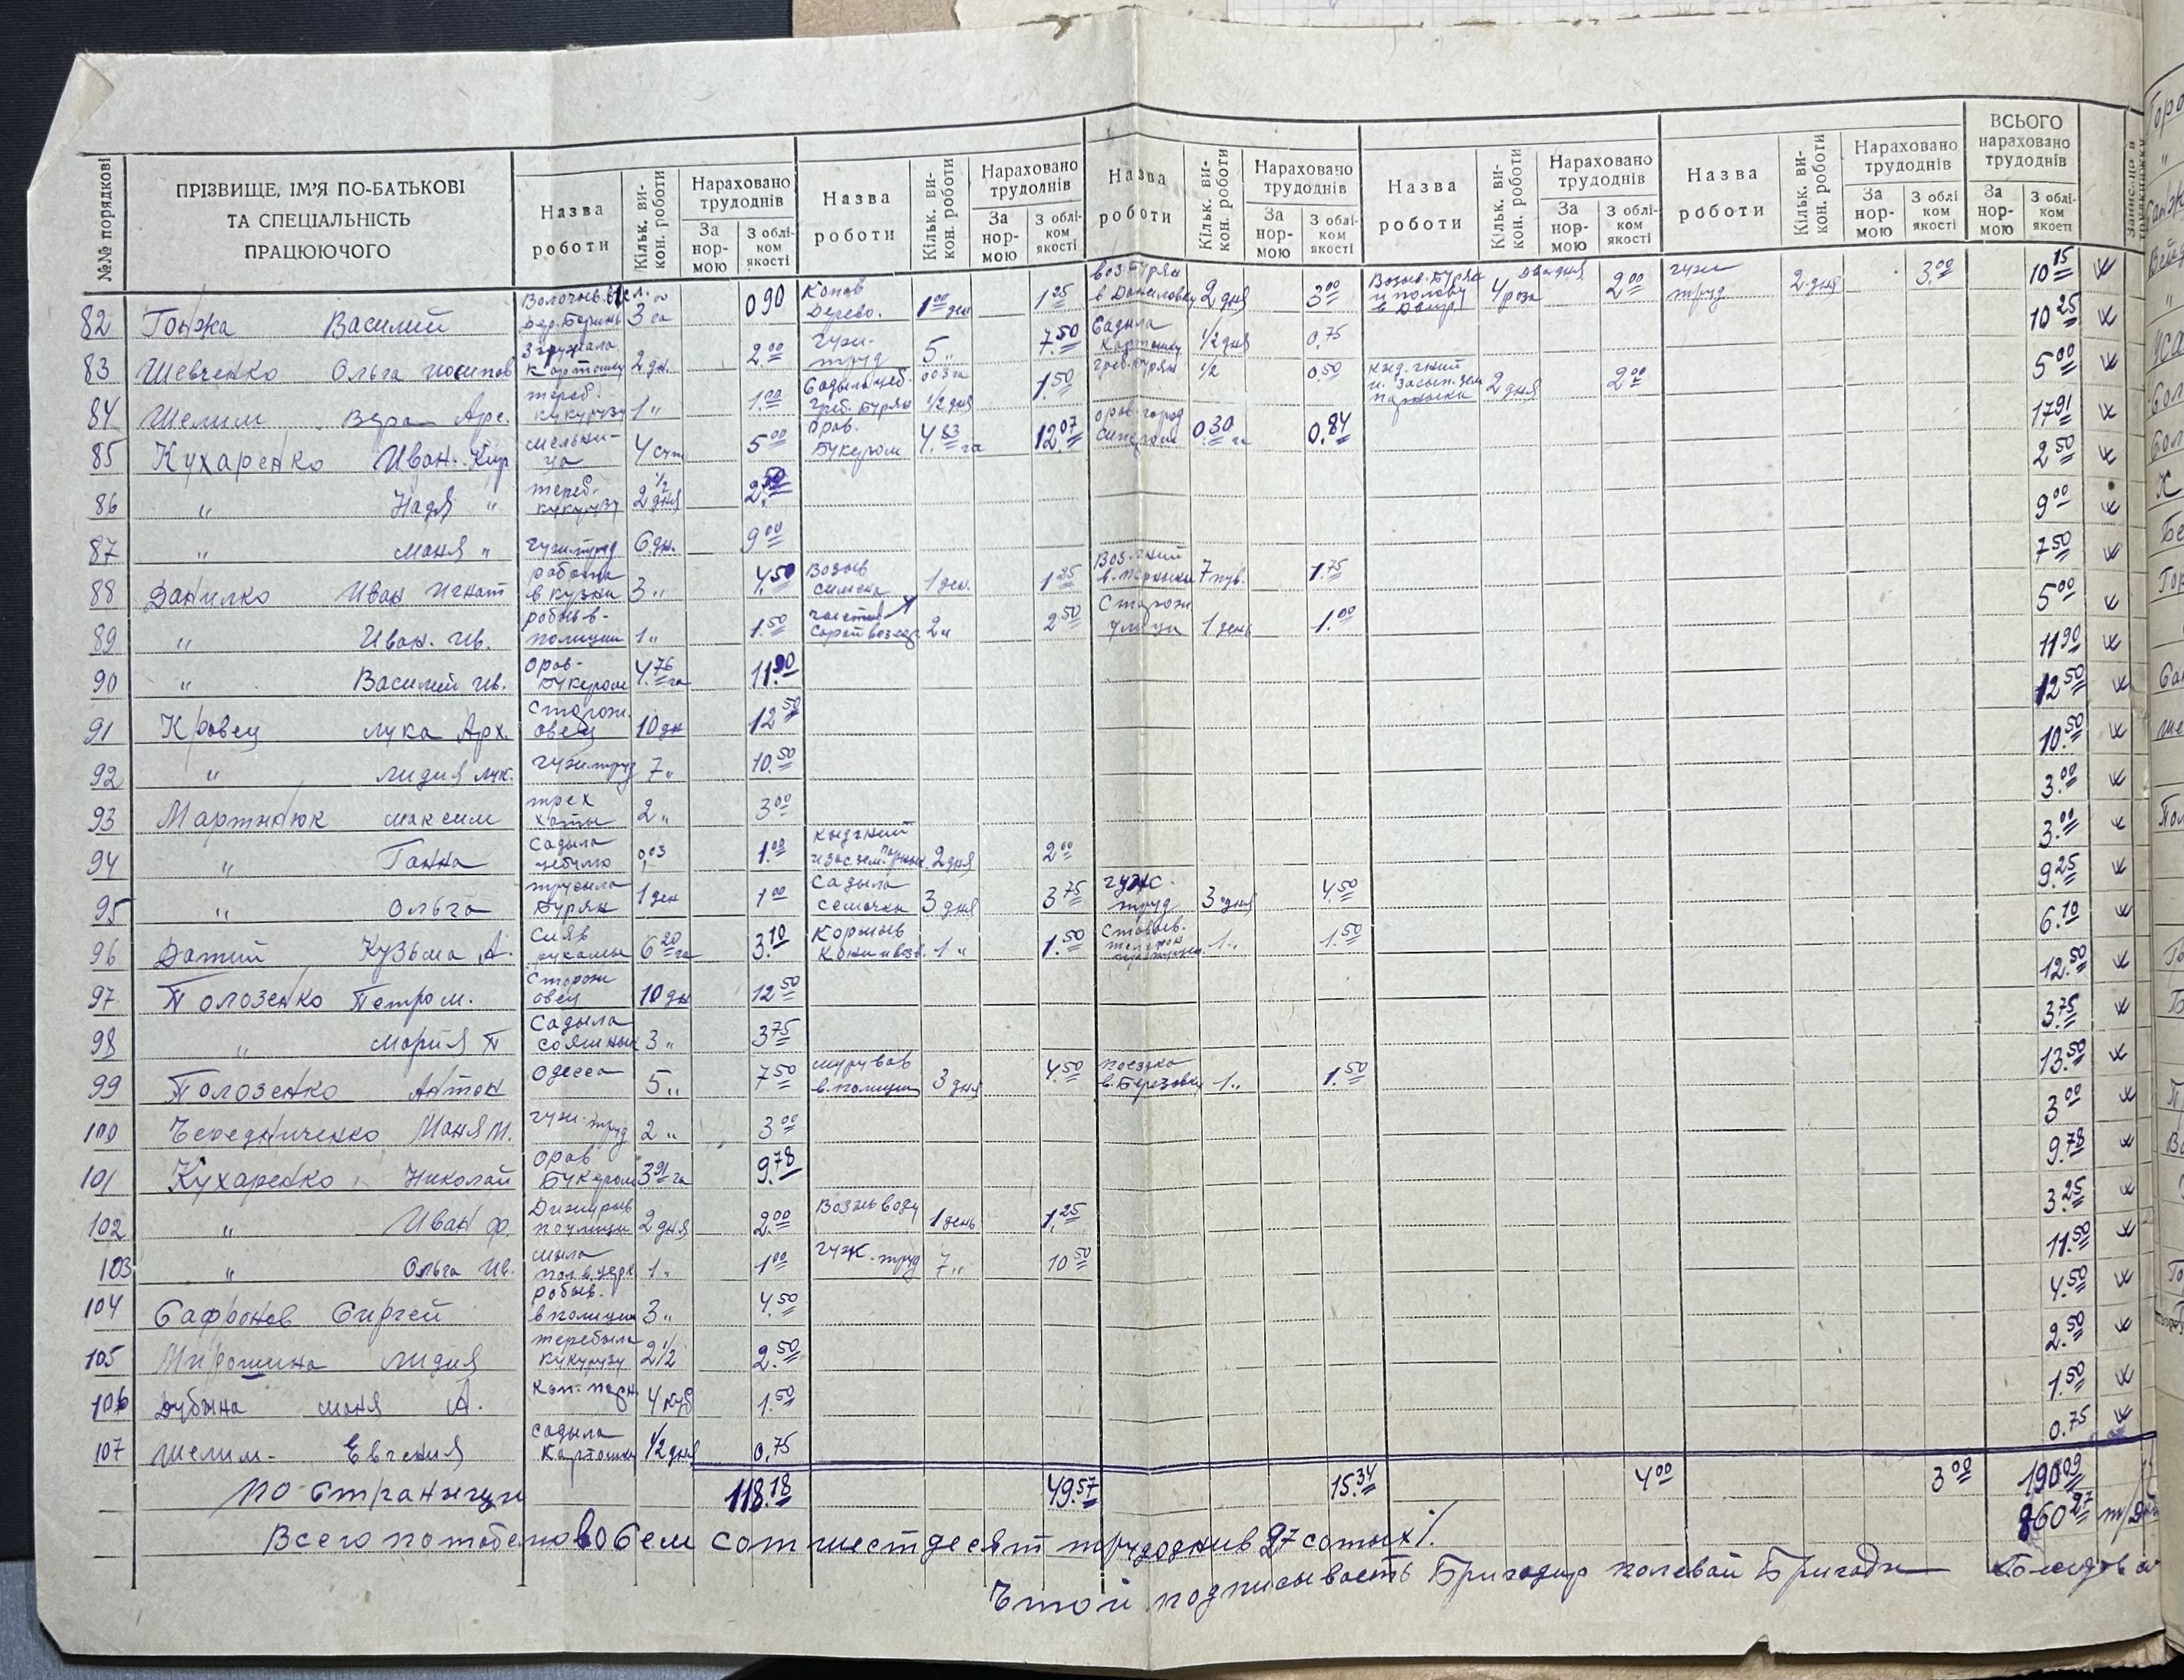 №№ порядкові
ПРІЗВИЩЕ, ІМ'Я ПО-БАТЬКОВІ ТА СПЕЦІАЛЬНІСТЬ ПРАЦЮЮЧОГО
Назва роботи Кільк. ви-кон. роботи Нараховано трудоднів За нор-мою З облі-ком якості
Назва роботи Кільк. ви-кон. роботи Нараховано трудоднів За нор-мою З облі-ком якості
Назва роботи Кільк. ви-кон. роботи Нараховано трудоднів За нор-мою З облі-ком якості
Назва роботи Кільк. ви-кон. роботи Нараховано трудоднів За нор-мою З облі-ком якості
Назва роботи Кільк. ви-кон. роботи Нараховано трудоднів За нор-мою З облі-ком якості
ВСЬОГО нараховано трудоднів За нор-мою З облі-ком якості
82 Гонжа Василий 3 га 0 90 Копав дерево. 1 00 ден 1 25 воз. Бурян в Даниловку 2 дня 3 00 4 роза 2 00 гуж труд 2 дня 3.00 10 15
83 Шевченко Ольга картошку 2 дн. 2.00 гуж-труд 5 " 7.50 Садыла картошку 1/2 дня 0,75 10 25
84 Шелим Вера Арс. тереб. кукурузу 1 " 1.00 греб. Бурян 1/2 дня 1.50 греб. бурян 1/2 0.50 кид. гний и засып. зем парныки 2 дня 2 00 5 00
85 Кухаренко Иван. Кир мельни-ца 4 сут 5 00 Орав. Букером 4.83 га 12 07 орав. город 0.30 га 0.84 17 91
86 " Надя " тереб. кукурузу 2 1/2 дня 2.50 2 50
87 " Маня " Гуж. труд 6 дн. 9 00 9 00
88 Данилко Иван Игнат работа в кузни 3 " 4,50 Возыв 1 ден. 1 25 Воз. гний в. парныки 7 1.75 7 50
89 " Иван. Ив. полиции 1 " 1.50 2 " 2 50 Сторож улици 1 день 1.00 5 00
90 " Василий Ив. Орав-Букером 4.76 га 11.90 11 90
91 Кравец Лука Арх. Сторож. овец 10 дн 12 50 12 50
92 " Лидия Лук. Гуж. труд 7 " 10.50 10.50
93 Мартынюк Максим 2 " 3 00 3.00
94 " Ганна Садыла цебулю 0,03 1.00 кид гний 2 дня 2 00 3.00
95 " Ольга трусыла Бурян 1 ден 1 00 Садыла семачки 3 дня 3 75 гуж. труд 3 дня 4.50 9.25
96 Датий Кузьма А. Сияв руками 6 20 га 3.10 Кормыв 1 " 1.50 1 " 1.50 6.10
97 Полозенко Петро М. Сторож овец 10 дн 12 50 12.50
98 " Мария П Садыла 3 " 3 75 3.75
99 Полозенко Антон Одесса 5 " 7 50 в. полиции 3 дня 4.50 поездка в. Березовку 1 " 1.50 13.50
100 Чередниченко Маня М. гуж. труд 2 " 3 00 3 00
101 Кухаренко Николай Орав Букером 3 91 га 9.78 9.78
102 " Иван Ф. Дижурыв полиции 2 дня 2.00 Возыв воду 1 день 1,25 3.25
103 " Ольга Ив. мыла 1 " 1 00 гуж. труд 7 " 10 50 11.50
104 Сафронов Сиргей робыв. в полиции 3 " 4.50 4.50
105 Мирошина Лидия теребыла кукурузу 2 1/2 2.50 2.50
106 Дубына Маня А. 4 куб 1.50 1.50
107 Шелим- Евгения садыла картошку 1/2 дня 0.75 0.75
По странице 118.18 49.57 15.34 4 00 3 00 190 09
860 27
Восем сот шестдесят трудоднив 27 сотых
подписывает Бригадир полевой Бригады